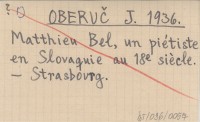 ?
OBERUČ J. 1936.
Matthieu Bel, un piétiste
en Slovaquie au 18e siècle.
– Strasbourg.